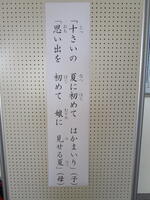 「十さいの 夏に初めて はかまいり」(子)
「思い出を 初めて 娘に 見せる夏」(母)